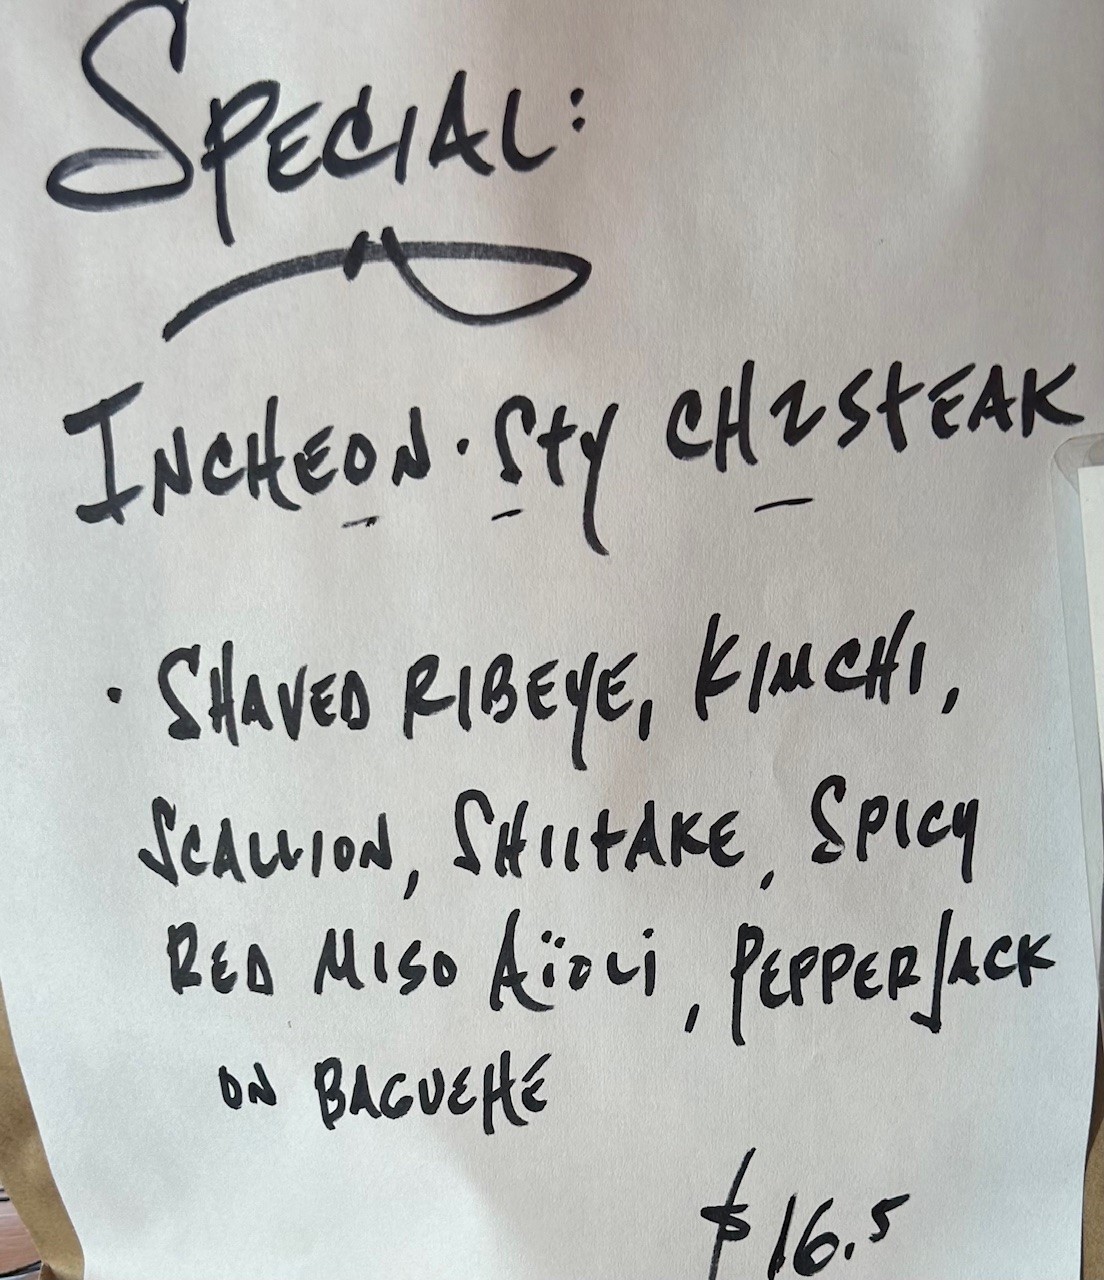 SPECIAL:
INCHEON · Sty CHZSTEAK
· SHAVED RIBEYE, KIMCHI,
SCALLION, SHIITAKE, SPICY
RED MISO AÏOLI, PEPPERJACK
ON BAGUETTE
$16.5